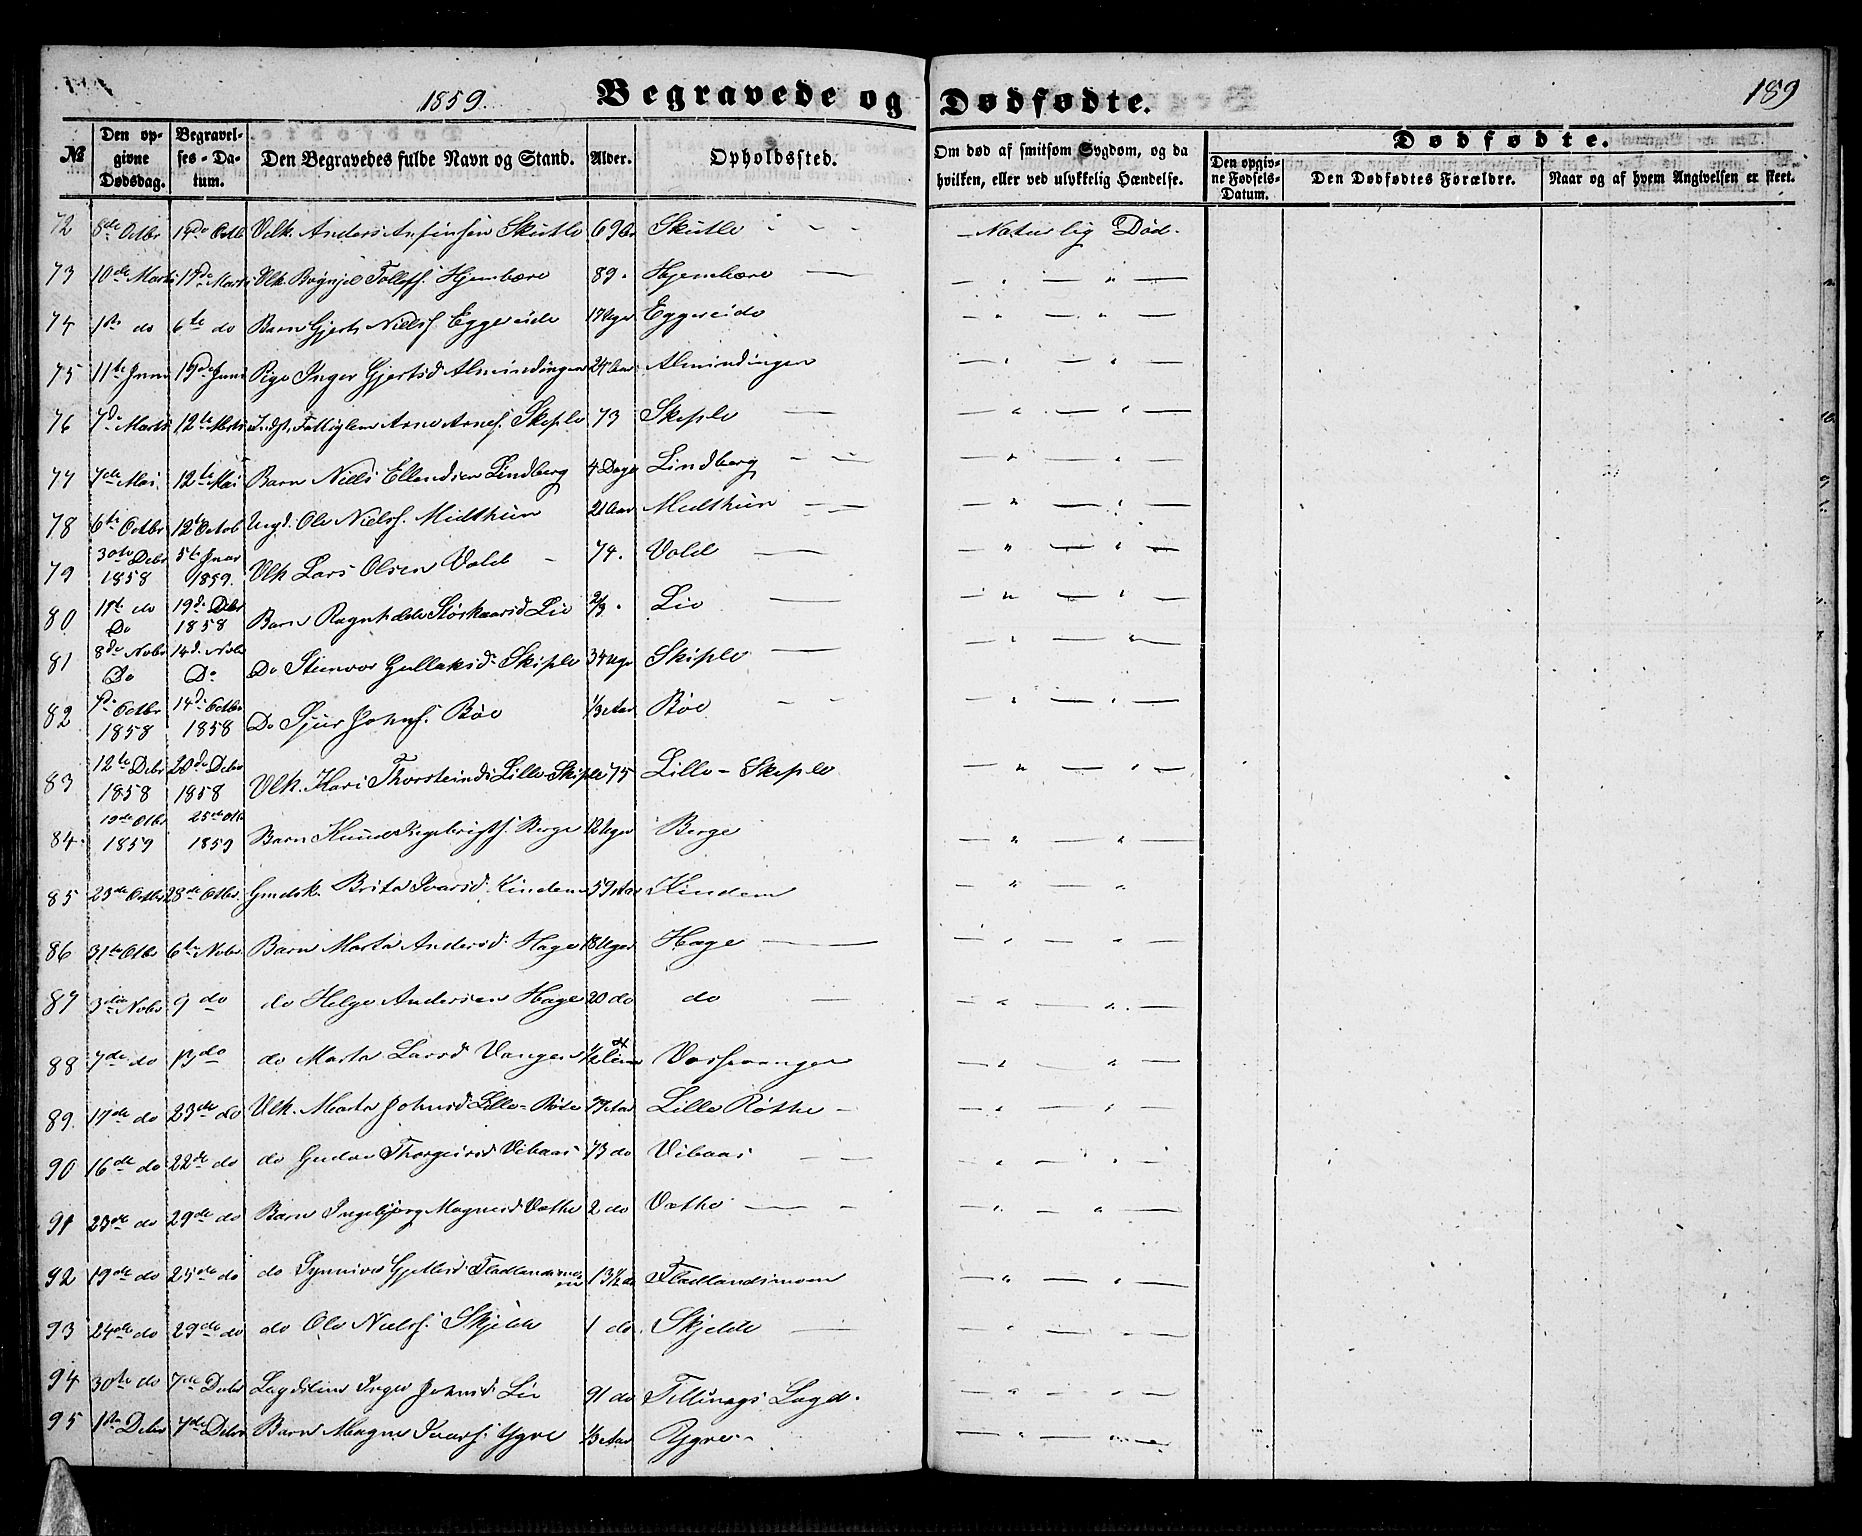 1859. Begravede og Dødfødte. 189
№ Den opgivne Dødsdag. Begravelses-Datum. Den Begravedes fulde Navn og Stand. Alder. Opholdssted. Om død af smitsom Sygdom, og da hvilken, eller ved ulykkelig Hændelse. Dødfødte.
Den opgivne Fødsels-Datum. Den Dødfødtes Forældre. Naar og af hvem Angivelsen er skeet.
72 8de Octbr 14de Octb Vlk. Anders Anfinsen Skutle 69 Aar Skutle - - - Naturlig Død.
73 10de Marts 17de Marts Vlk. Tollefs. Hjembære 89. Hjembære — — " — " —
74 1ste do 6te do Barn Gjert Nielss. Eggereide 17 Uger Eggereide — " — " —
75 11te Juni 19de Juni Pige Inger Gjertsd Almindingen 24 Aar Almindingen — " — " —
76 7de Marts 12te Marts Indst. Fattiglem Arne Arnes. Skiple 73 Skiple — — " — " —
77 7de Mai. 12te Mai Barn Niels Ellendsen Lindberg 4 Dage Lindberg — " — " —
78 6te Octbr 12te Octob Ungd. Ole Nielss. Midthun 21 Aar Medthun — — " — " —
79 30te Debr 1858 5te Jnar 1859. Vlk Lars Olsen Vold 74. Vold — — " — " —
80 do Do 19de Debr 1858 Barn Ragnhilde Lie 2/3. Lie — — " — " —
81 8de Nobr Do 14d. Nobr Do Do Steinvor Gullaksd. Skiple 34 Uger Skiple — — " — " —
82 7de Octbr 1858 14d. Octbr 1858 Do Sjur Johns. Böe 1/3 Aar. Böe - - — " — " —
83 12te Debr 1858 20de Debr 1858 Vlk. Kari Thorsteind. Lille-Skiple 75 Lille-Skiple — " — " —
84. 19de Otbr 1859 25de Otb 1859 Barn Knud Ingebrigts. Berge 12 Uger Berge — " — " —
85 23de Octbr 28de Otbr. Gmdsk. Brita Ivarsd. Kindem 59 Aar Kindem — " — "
86 31te Otbr 6te Nobr. Barn Marta Andersd. Hage 18 Uger Hage — — — " — " —
87 3die Nobr 9de do do Helge Andersen Hage 20 do do — — " — " —
88 7de do 13de do do Marta Larsd Vangen 1/2 Vossevangen — " — " —
89. 17de do 23de do Vlk. Marta Johnsd Lille-Röte Aar Lille Röthe — — " — " —
90 16de do 22de do do Gudve Thorgeirsd Vibaas 73 do Vibaas — — — " — " —
91 23de do 29de do Barn Ingebjørg Magnesd Væthe 2 do Væthe — — — " — " —
92 19de do 25de do do Synnive Gjellesd Fladlandsmoen 13 1/2 do Fladlandsmoen — " — " —
93 24de do 29de do do Ole Nielss. Skjelde 1 do. Skjelde — — " — " —
94 30te do 7de Debr Lægdslem Inger Johnsd Lie 91 do Tillinegs Lægd. — " — " —
95 1ste Debr 7de Debr Barn Magne Ivars. Ygre 1/3 Aar Ygre — — " — " —